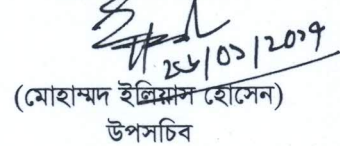 ২৬/০১/২০১৭
(মোহাম্মদ ইলিয়াস হোসেন)
উপসচিব